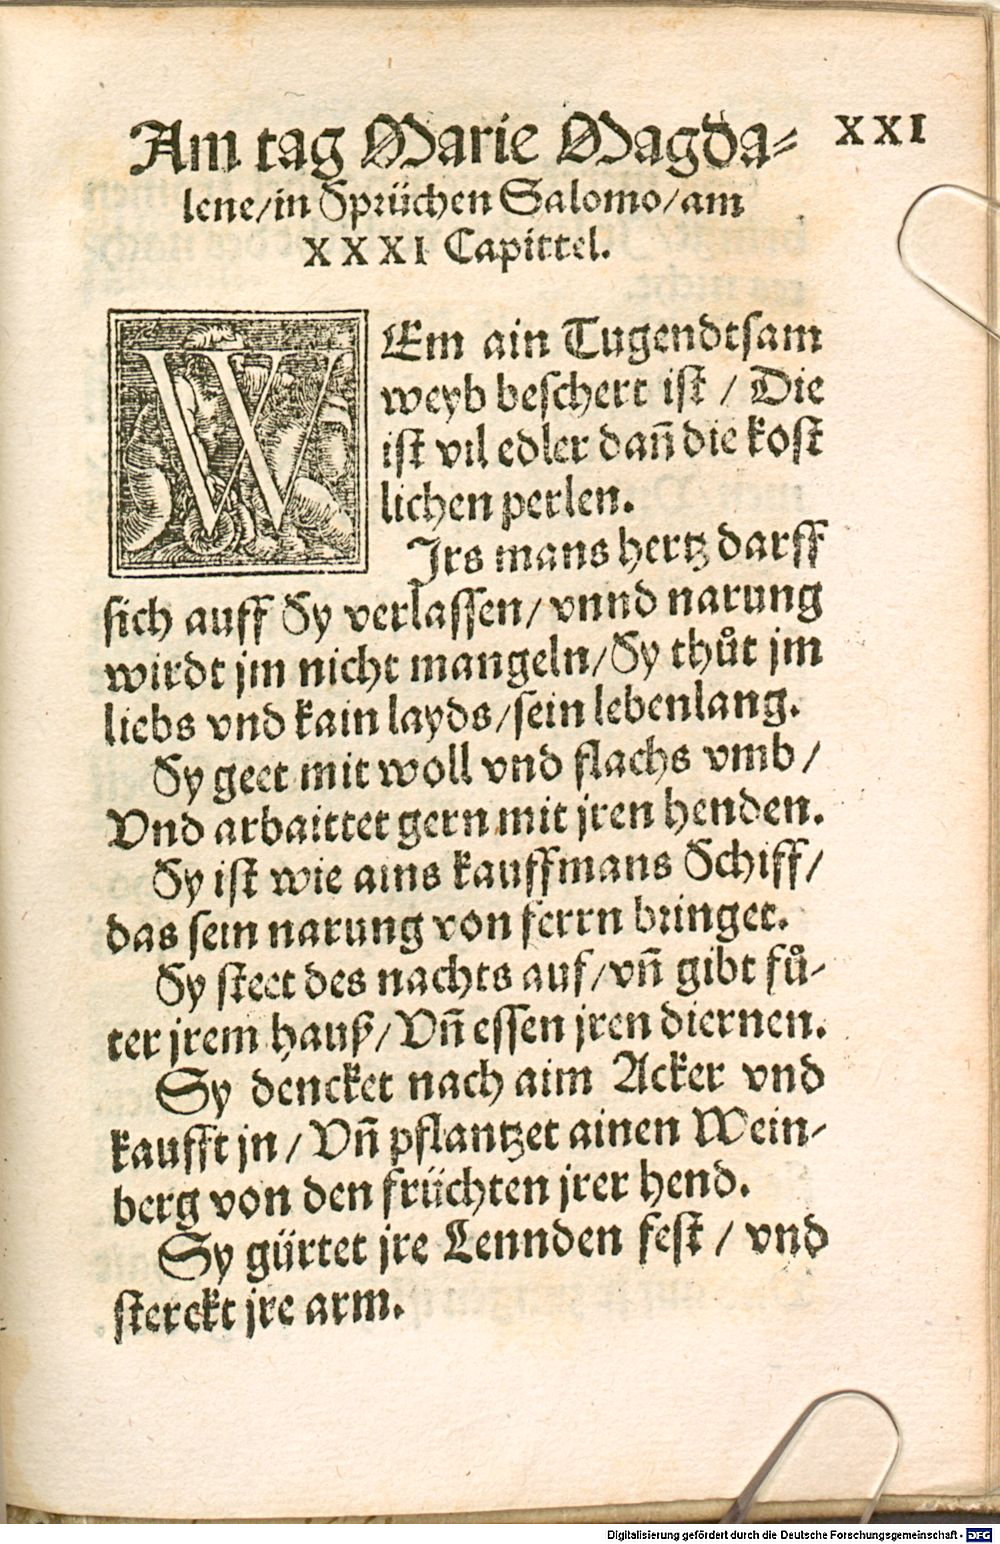 Am tag Marie Magda⸗
XXI
lene/in Sprüchen Salomo/am
XXXI Capittel.
WEm ain Tugendtsam
weyb beschert ist / Die
ist vil edler dañ die kost
lichen perlen.
Jrs mans hertz darff
sich auff Sy verlassen/ vnnd narung
wirdt jm nicht mangeln/Sy thůt jm
liebs vnd kain layds/sein lebenlang.
Sy geet mit woll vnd flachs vmb /
Vnd arbaittet gern mit jren henden.
Sy ist wie ains kauffmans Schiff/
das sein narung von ferrn bringet.
Sy steet des nachts auf/vñ gibt fů⸗
ter jrem hauß/Vñ essen jren diernen.
Sy dencket nach aim Acker vnd
kaufft jn / Vñ pflantzet ainen Wein⸗
berg von den früchten jrer hend.
Sy gürtet jre Lennden fest / vnd
sterckt jre arm.
Digitalisierung gefördert durch die Deutsche Forschungsgemeinschaft - DFG